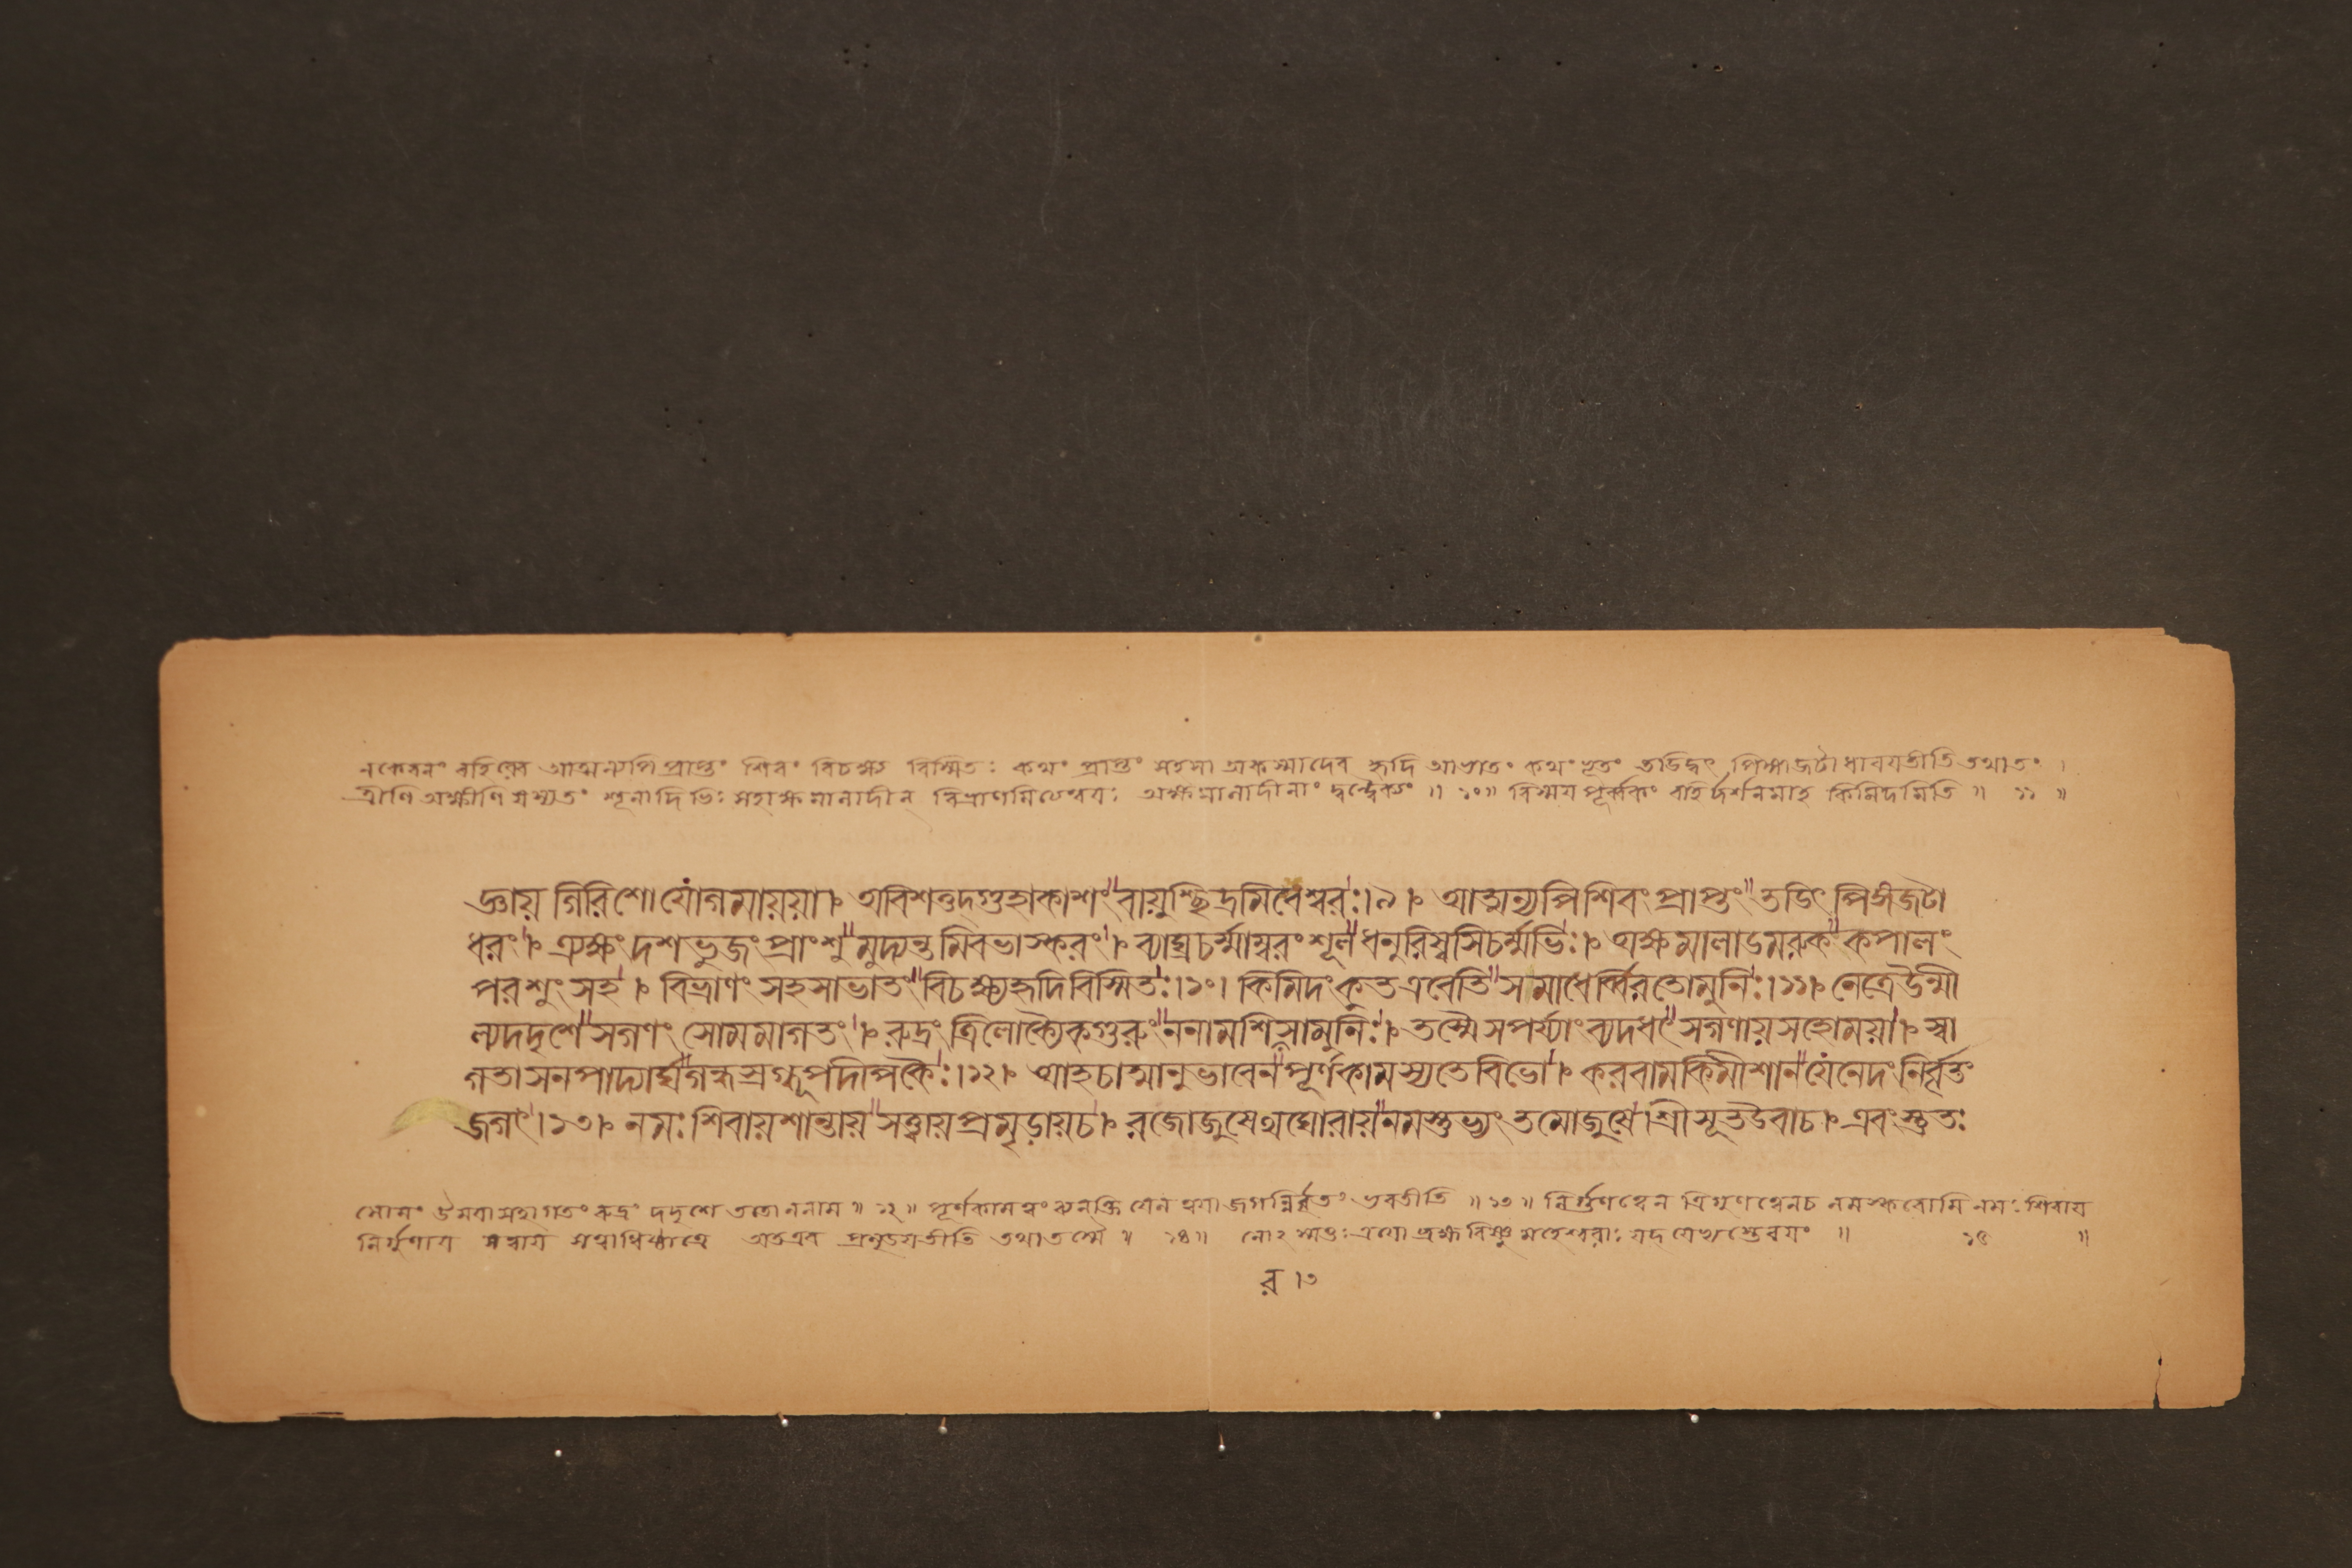 নকেবলং বহিরেব আত্মন্যপি প্রাপ্তং শিবং বিচক্ষ্য বিস্মিতঃ কথং প্রাপ্তং সহসা অকস্মাদেব হৃদি আভাতং কথং ভূতং তডিদ্বৎ পিঙ্গাজটা ধারযতীতি তথাতং ।
ত্রীণি অক্ষীণি যস্যতং শূলাদিভিঃ সহাক্ষমালাদীন্ বিভ্রাণমিত্যেশ্বরঃ অক্ষমালাদীনাং দ্বন্দ্বৈক্যং ॥ ১০॥ বিস্ময পূর্ব্বকিং বহির্দর্শনমাহ কিমিদমিতি ॥ ১১ ॥
জ্ঞায় গিরিশো যোগমায়য়া। অবিশত্তদগুহাকাশং"বায়ুশ্ছিদ্রমিবেশ্বরঃ।৯। আত্মন্যপি শিবং প্রাপ্তং"তডিৎ পিঙ্গজটা
ধরং। ত্র্যক্ষং দশ ভুজং প্রাংশু"মুদ্যন্তমিবভাস্করং। ব্যাঘ্রচর্ম্মাম্বরং শূল"ধনুরিষ্বসিচর্ম্মভিঃ। অক্ষমালাডমরুক"কপালং
পরশুং সহ। বিভ্রাণং সহসাভাতং"বিচক্ষ্যহৃদিবিস্মিতঃ।১০। কিমিদংকুতএবেতি"সমাধের্ব্বিরতোমুনিঃ।১১। নেত্রেউন্মী
ল্যদদৃশে"সগণং সোমমাগতং। রুদ্রং ত্রিলোক্যৈকগুরুং"ননামশিরসামুনিঃ। তস্মৈ সপর্য্যাংব্যদধৎ"সগণায়সহোময়া। স্বা
গতাসনপাদ্যার্ঘ্য"গন্ধস্রগ্ধূপদীপকৈঃ।১২। আহচাত্মানুভাবেন"পূর্ণকামস্যতেবিভো। করবামকিমীশান"যেনেদং নির্বৃতং
জগৎ।১৩। নমঃ শিবায়শান্তায়"সত্ত্বায়প্রমৃডায়চ। রজোজুষেথঘোরায়"নমস্তুভ্যং তমোজুষে।শ্রীসূতউবাচ। এবংস্তুতঃ
সোমং উমযাসহাগতং রুদ্রং দদৃশে ততো ননাম ॥ ১২॥ পূর্ণকামত্বং ব্যনক্তি যেন ত্বযা জগন্নির্বৃতং ভবতীতি ॥১৩॥ নির্গুণত্বেন ত্রিগুণত্বেনচ নমস্করোমি নমঃ শিবায
নির্গুণায সত্বায সত্বাধিষ্ঠাত্রে অতএব প্রমৃডযতীতি তথাতস্মৈ ॥ ১৪॥ ব্রহ্মবিষ্ণু মহেশ্বরাঃ ॥ ১৫ ॥
র ।৩